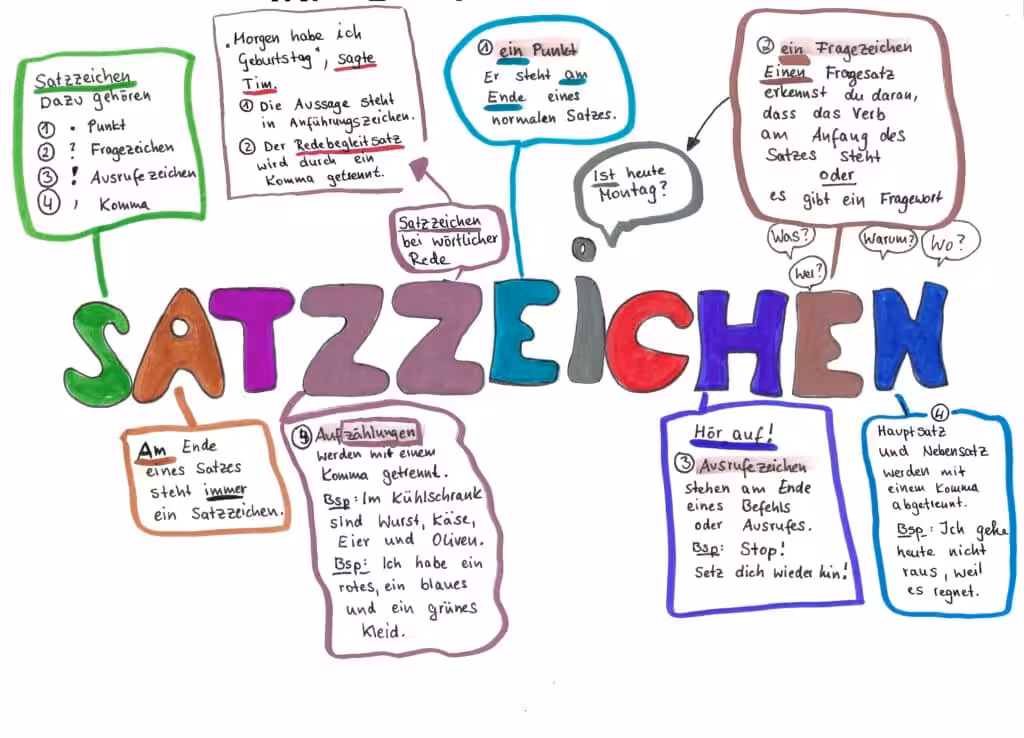 Satzzeichen
Dazu gehören
① . Punkt
② ? Fragezeichen
③ ! Ausrufezeichen
④ , Komma
„Morgen habe ich
Geburtstag“, sagte
Tim.
① Die Aussage steht
in Anführungszeichen.
② Der Redebegleitsatz
wird durch ein
Komma getrennt.
Satzzeichen
bei wörtlicher
Rede
① ein Punkt
Er steht am
Ende eines
normalen Satzes.
Ist heute
Montag?
② ein Fragezeichen
Einen Fragesatz
erkennst du daran,
dass das Verb
am Anfang des
Satzes steht
oder
es gibt ein Fragewort
Was?
Warum?
Wo?
Wer?
SATZZEiCHEN
Am Ende
eines Satzes
steht immer
ein Satzzeichen.
④ Aufzählungen
werden mit einem
Komma getrennt.
Bsp: Im Kühlschrank
sind Wurst, Käse,
Eier und Oliven.
Bsp: Ich habe ein
rotes, ein blaues
und ein grünes
Kleid.
Hör auf!
③ Ausrufezeichen
stehen am Ende
eines Befehls
oder Ausrufes.
Bsp: Stop!
Setz dich wieder hin!
④
Hauptsatz
und Nebensatz
werden mit
einem Komma
abgetrennt.
Bsp: Ich gehe
heute nicht
raus, weil
es regnet.